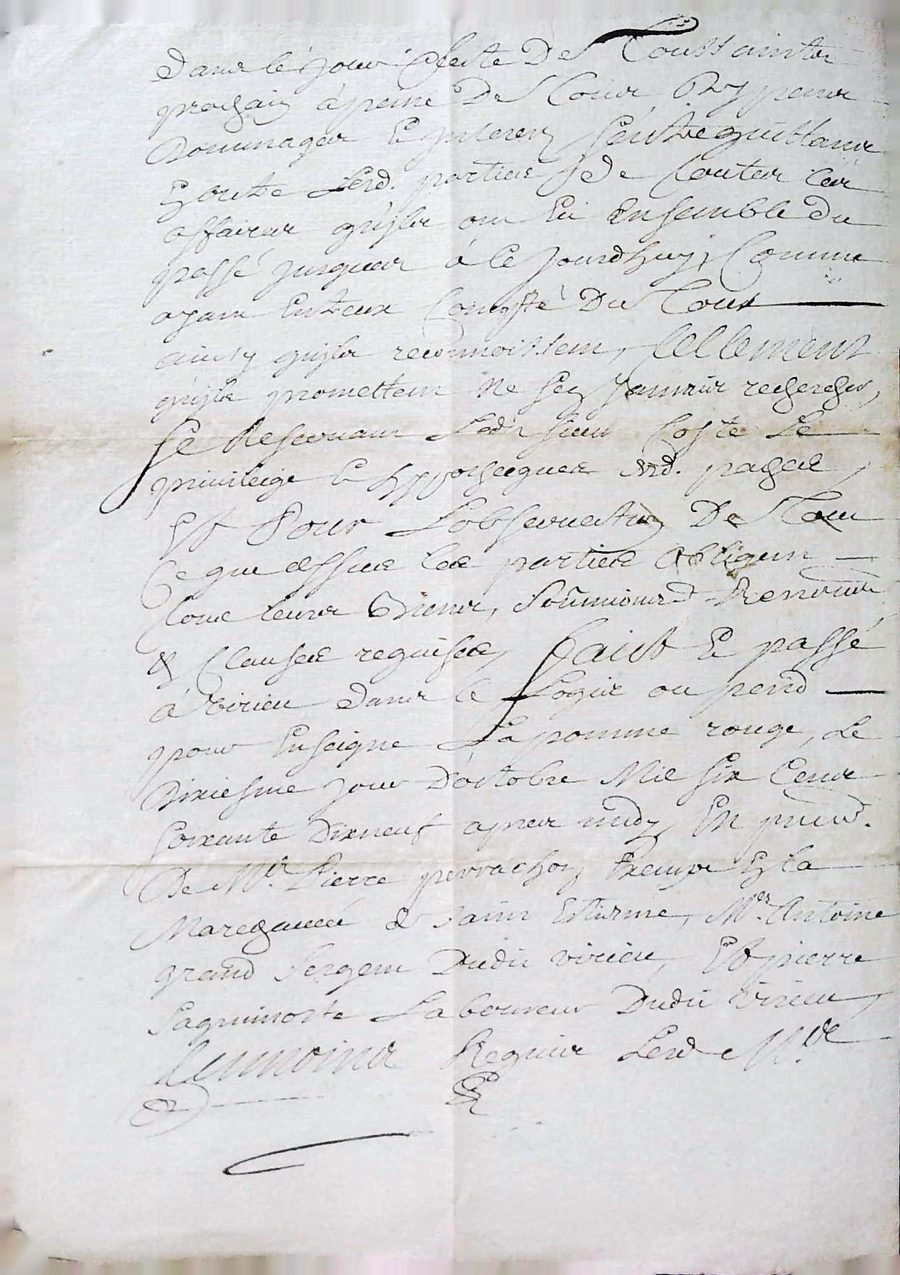 Dans le jour & feste De Toussaintz
prochain à peine De Tous Despens
Dommages Et Interez s'entrequittans
En oultre Lesd. parties De toutes les
affaires qu'ils ont Eu Ensemble du
passé jusques à Ce Jourdhuy, Comme
ayant Entreux Compté Du Tout
ainsy qu'ils reconnoissent, tellement
qu'ils promettent Ne s'en Jamais rechercher,
Se Reservant Ledit sieur Coste Le
privileige & hypothecques desd. paches
Et Pour L'observation De Tout
Ce que dessus les parties obligent
Tous leurs Biens, soûmissions Renonciaons
& Clauses requises, faict Et passé
à virieu Dans le Logis ou pend
pour Enseigne La pomme rouge, Le
Dixiesme jour D'octobre Mil six Cens
soixante Dixneuf apres midy En pnce.
De Mr. Pierre perrachon Exempt En la
Marechaussé de saint Estienne, Mre. Antoine
grand sergent Dudit virieu, Et pierre
Laboureur Dudit virieu,
tesmoins Requis Lesd. Mre.
Et